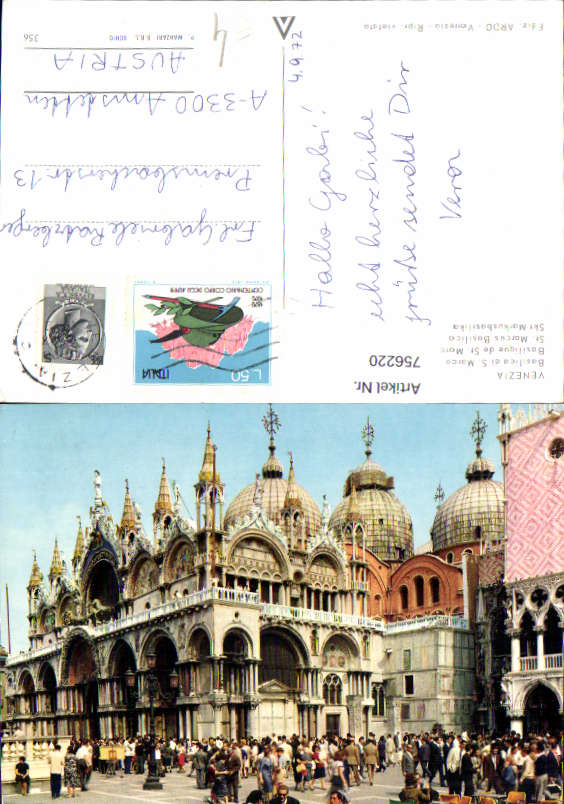 VENEZIA
Basilica di S. Marco
Basilique de St. Marc
St. Marcus Basilica
Skt. Markusbasilika
Artikel Nr.
756220
Hallo Gabi!
echt herzliche
grüße sendet Dir
Vera
4.9.72
Ediz. ARDO - Venezia - Ripr. vietata
L.50 ITALIA
CENTENARIO CORPO DEGLI ALPINI
Frl. Gabriele Ratzberger
Premsbacherstr. 13
A-3300 Amstetten
AUSTRIA
4
356